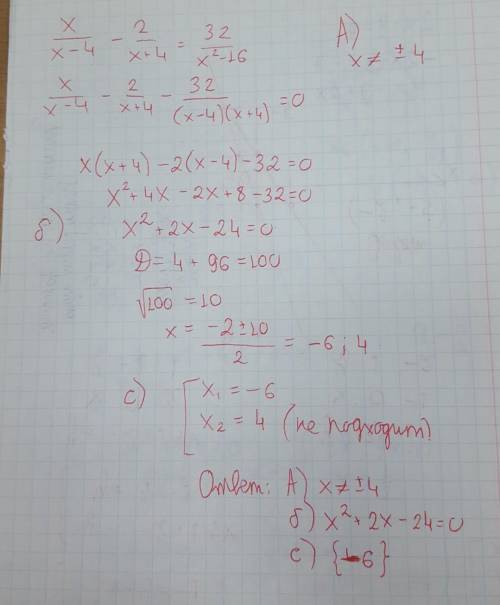 x/(x-4) - 2/(x+4) = 32/(x²-16)
А) x ≠ ±4
x/(x-4) - 2/(x+4) - 32/((x-4)(x+4)) = 0
x(x+4) - 2(x-4) - 32 = 0
x² + 4x - 2x + 8 - 32 = 0
б) x² + 2x - 24 = 0
D = 4 + 96 = 100
√100 = 10
x = (-2 ± 10)/2 = -6; 4
с) [x₁ = -6
x₂ = 4 (не подходит)
Ответ: А) x ≠ ±4
б) x² + 2x - 24 = 0
с) {-6}